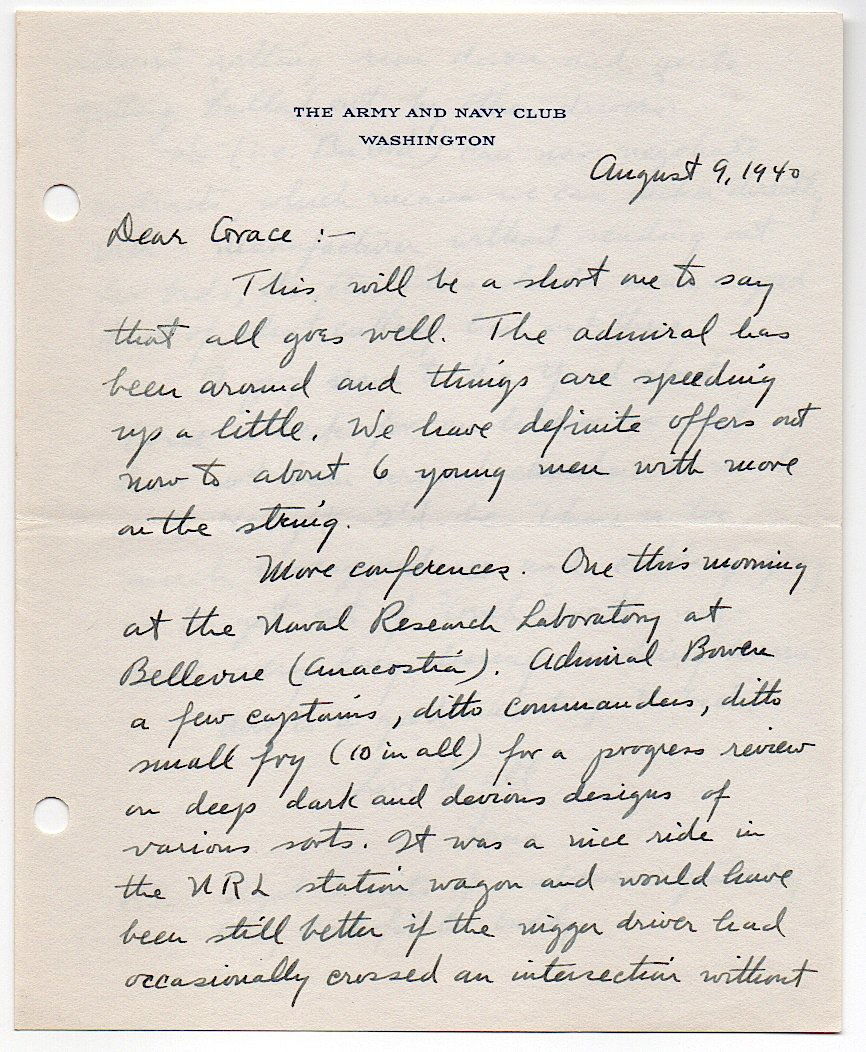 THE ARMY AND NAVY CLUB
WASHINGTON
August 9, 1940
Dear Grace :—
This will be a short one to say
that all goes well. The admiral has
been around and things are speeding
up a little. We have definite offers out
now to about 6 young men with more
on the string.
More conferences. One this morning
at the Naval Research Laboratory at
Bellevue (Anacostia). Admiral Bowen
a few captains, ditto commanders, ditto
small fry (10 in all) for a progress review
on deep dark and devious designs of
various sorts. It was a nice ride in
the NRL station wagon and would have
been still better if the nigger driver had
occasionally crossed an intersection without